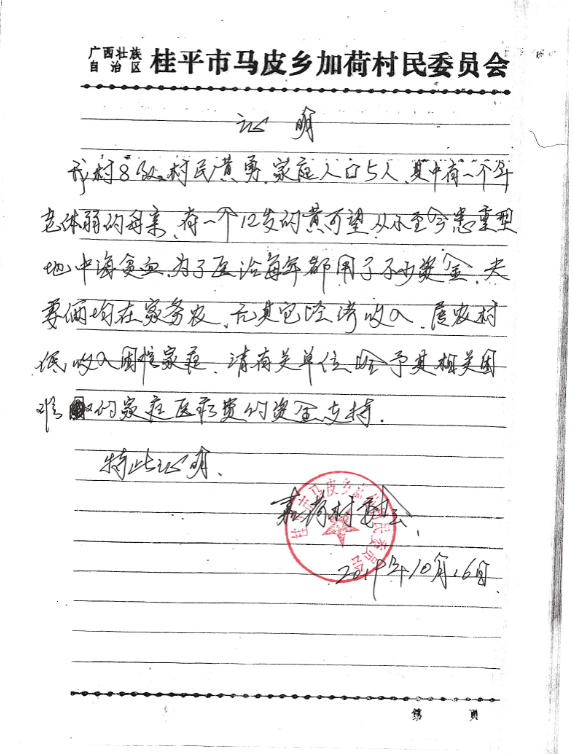 广西壮族
自治区
桂平市马皮乡加荷村民委员会
证明
我村8队村民黄勇,家庭人口5人,其中有一个年
老体弱的母亲,有一个12岁的黄可望从小至今患重型
地中海贫血,为了医治每年都用了不少资金,夫
妻俩均在家务农,无其它经济收入,属农村
低收入困难家庭,请有关单位给予其相关困
难的家庭医疗费的资金支持.
特此证明.
嘉荷村委会
10月16日
桂平市马皮乡加荷村民委员会
第 页